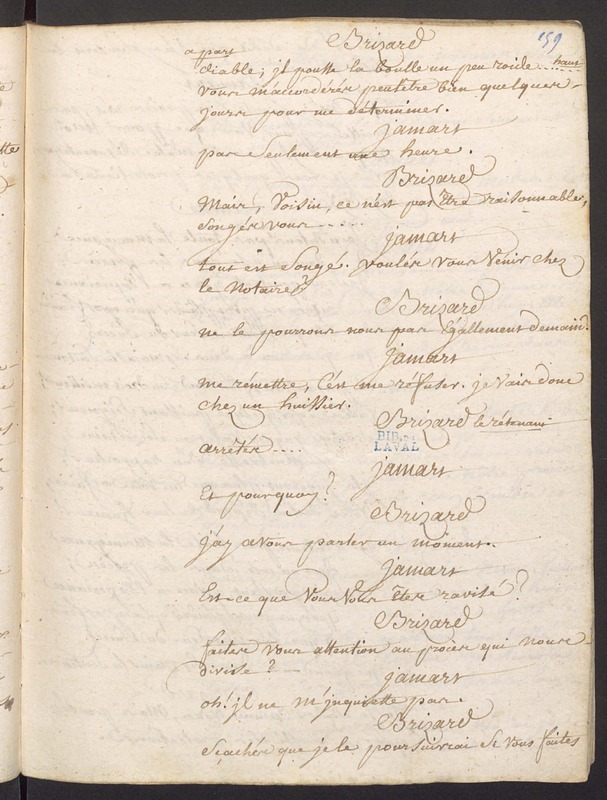 159
Brizard
a part
diable; jl pousse la boulle un peu roide... haut
vous m'accorderés peutêtre bien quelques
jours pour me déterminer.
jamart
pas seulement une heure.
Brizard
Mais, Voisin, ce n'est pas être raisonnable,
songés vous .....
jamart
tout est songé. voulés vous venir chez
le Notaire?
Brizard
ne le pourrons nous pas Egallement demain.
jamart
me rémettre, C'est me réfuser. je vais donc
chez un huissier.
Brizard le rétenant
arrêtés ....
BIB.
LAVAL
jamart
Et pourquoy?
Brizard
j'ay a vous parler un moment.
jamart
Est-ce que Vous Vous êtes ravisé?
Brizard
faites vous attention au procès qui nous
divise?
jamart
oh! jl ne m'jnquiette pas.
Brizard
Sçachés que je le poursuivrai si vous faites